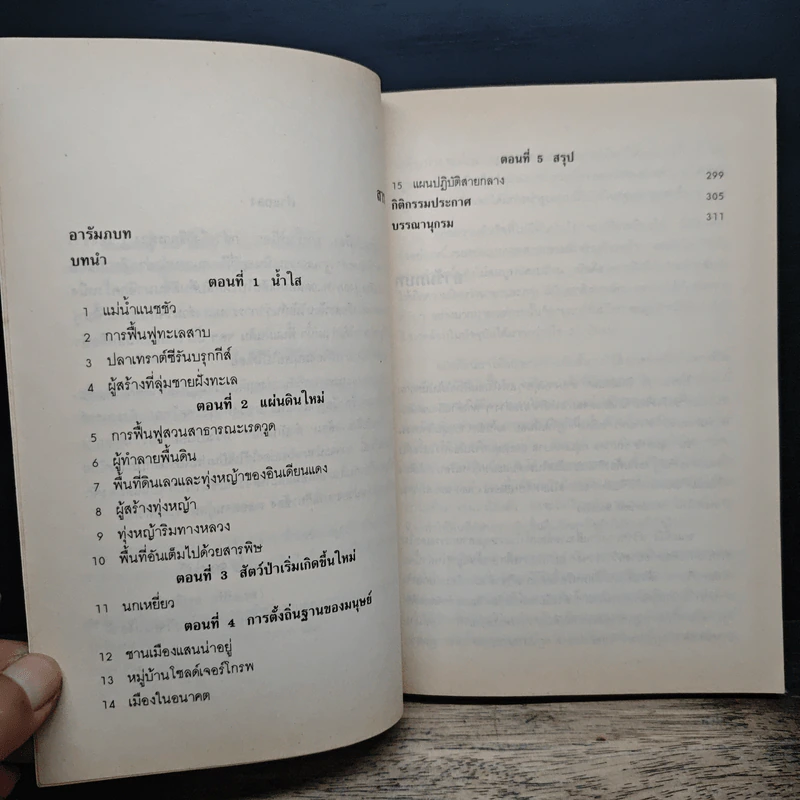 อารัมภบท
บทนำ
ตอนที่ 1 น้ำใส
1 แม่น้ำแนชชัว
2 การฟื้นฟูทะเลสาบ
3 ปลาเทราต์ซีรันบรุกกีส์
4 ผู้สร้างที่ลุ่มชายฝั่งทะเล
ตอนที่ 2 แผ่นดินใหม่
5 การฟื้นฟูสวนสาธารณะเรดวูด
6 ผู้ทำลายพื้นดิน
7 พื้นที่ดินเลวและทุ่งหญ้าของอินเดียนแดง
8 ผู้สร้างทุ่งหญ้า
9 ทุ่งหญ้าริมทางหลวง
10 พื้นที่อันเต็มไปด้วยสารพิษ
ตอนที่ 3 สัตว์ป่าเริ่มเกิดขึ้นใหม่
11 นกเหยี่ยว
ตอนที่ 4 การตั้งถิ่นฐานของมนุษย์
12 ชานเมืองแสนน่าอยู่
13 หมู่บ้านโซลด์เจอร์โกรพ
14 เมืองในอนาคต
ตอนที่ 5 สรุป
15 แผนปฏิบัติสายกลาง 299
กิติกรรมประกาศ 305
บรรณานุกรม 311